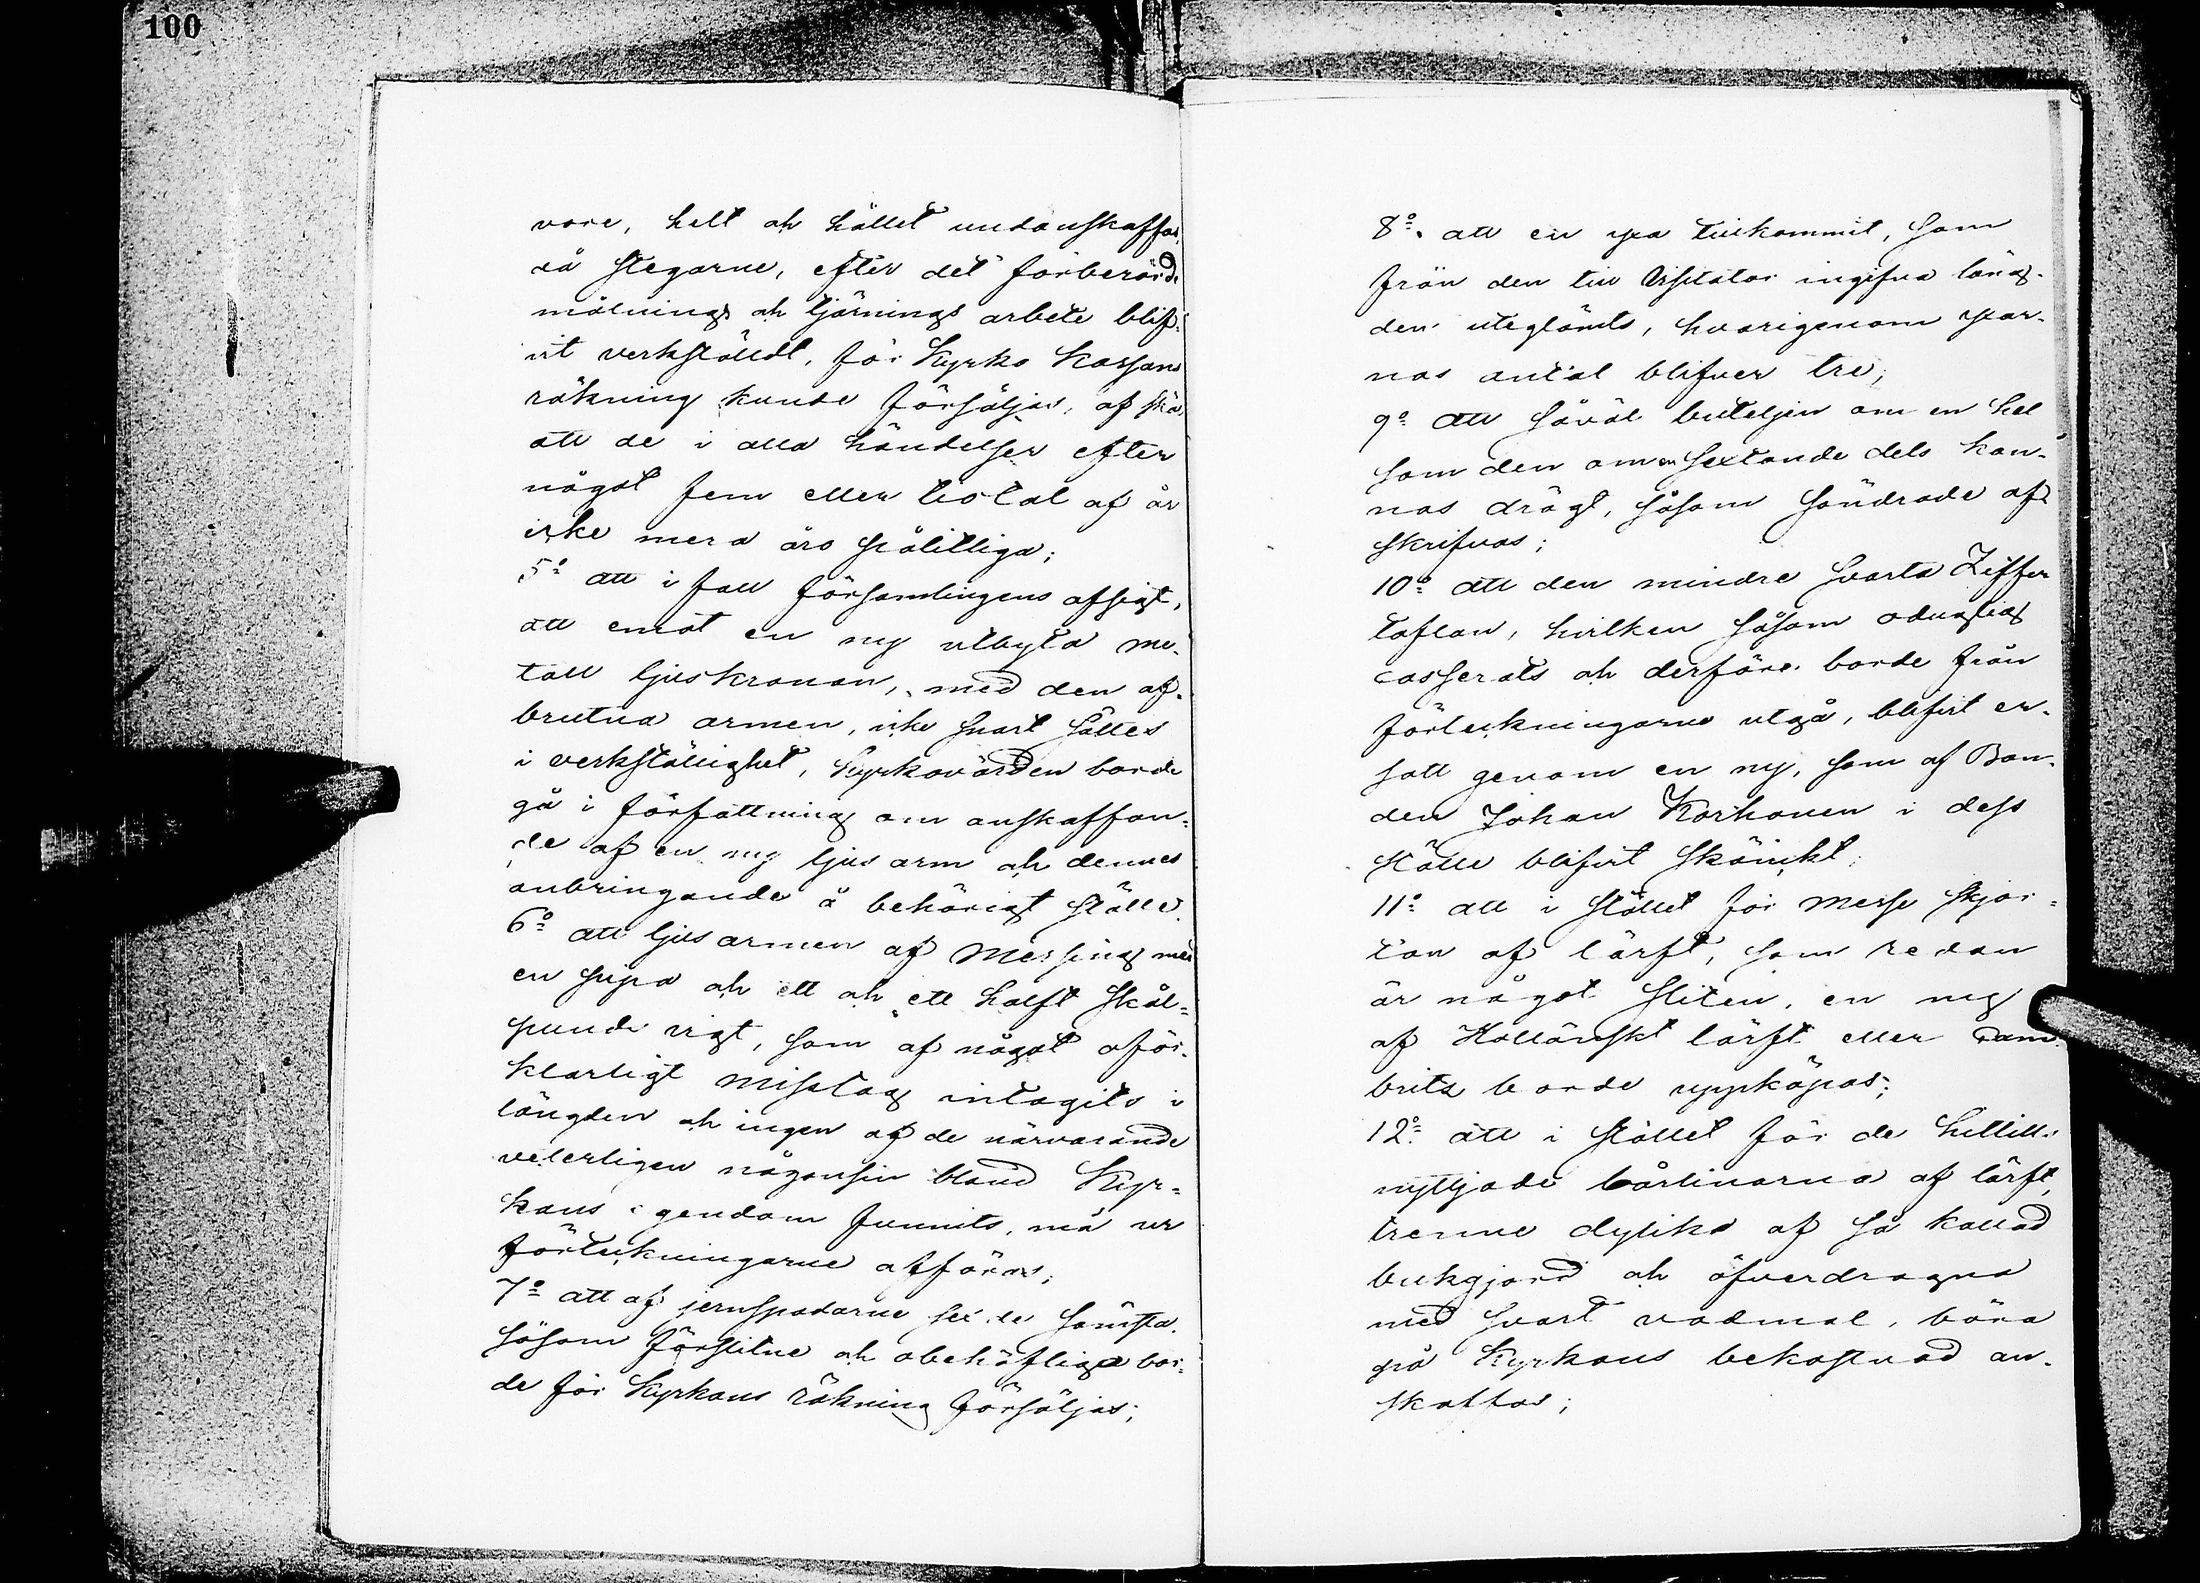 100
vore, helt och hållet undanskaffas,
då stegarne, efter det förberörde
målnings och tjärnings arbete blif-
vit verkstäldt, för Kyrko Kassans
räkning kunde försäljas, af skä
att de i alla händelser efter
något fem eller tiotal af år
icke mera äro pålitliga;
5º att i fall församlingens afsigt,
att emot en ny utbyta me-
tall ljuskronan, med den af-
brutna armen, icke snart sättes
i verkställighet, Kyrkovärden borde
gå i författning om anskaffan-
de af en ny ljus arm och dennes
anbringande å behörigt ställe.
6º att ljusarmen af Messing med
en pipa och ett och ett halft skål-
punds vigt, som af något oför-
klarligt misstag intagits i
längden och ingen af de närvarande
veterligen någonsin bland Kyr-
kans egendom funnits, må ur
förteckningarne afföras;
7º att af jernspadarne de sämsta
såsom förslitne och obehöfliga bor-
de för Kyrkans räkning försäljas;
8º. att en yxa tillkommit, som
från den till Visitator ingifna läng-
den uteglömts, hvarigenom yxar-
nas antal blifver tre;
9º att såväl buteljen om en hel
som den om en sextonde dels kan-
nas drägt, såsom söndrade af
skrifvas;
10º att den mindre svarta Ziffer
taflan, hvilken såsom oduglig
casserats och derföre borde från
förteckningarne utgå, blifvit er-
satt genom en ny, som af Bon-
den Johan Korhonen i dess
ställe blifvit skänkt;
11º att i stället för messe skjor-
tan af lärft, som redan
är något sliten, en ny
af Holländskt lärft eller cam-
brits borde uppköpas;
12º att i stället för de hittills
nyttjade bårlinorna af lärft,
trenne dylika af så kallad
bukgjord och öfverdragna
med svart vadmal, böra
på Kyrkans bekostnad an-
skaffas;